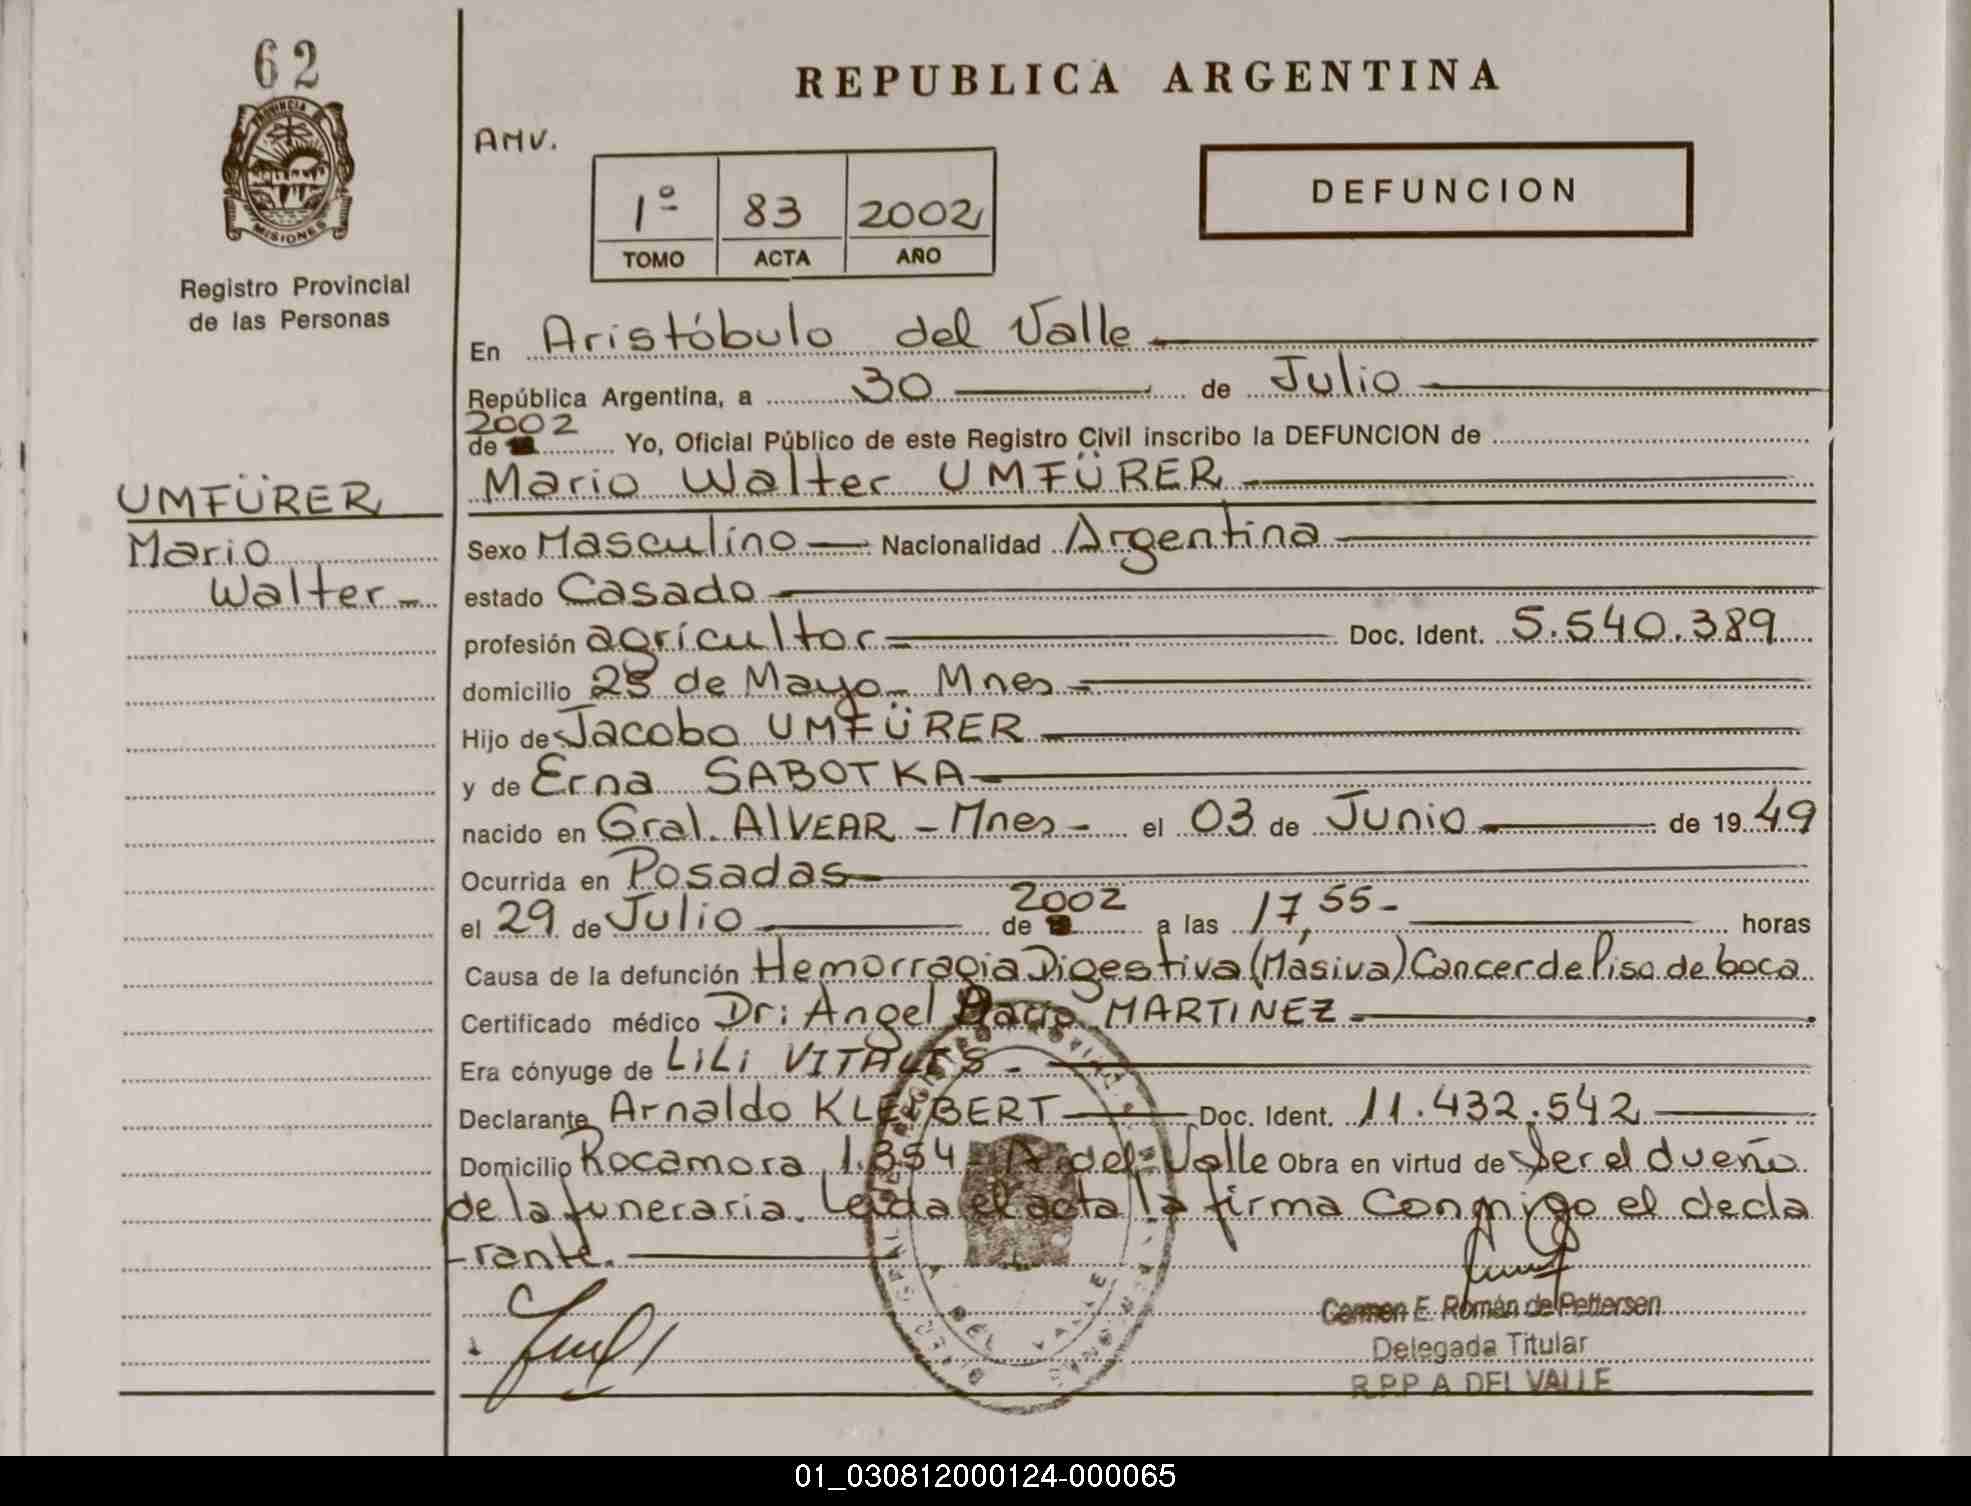 62
PROVINCIA DE
MISIONES
Registro Provincial
de las Personas
UMFÜRER
Mario
Walter
REPUBLICA ARGENTINA
AMV.
1º 83 2002
TOMO ACTA AÑO
DEFUNCION
En Aristóbulo del Valle
República Argentina, a 30 de Julio
2002
de Yo, Oficial Público de este Registro Civil inscribo la DEFUNCION de
Mario Walter UMFÜRER
Sexo Masculino Nacionalidad Argentina
estado Casado
profesión agricultor Doc. Ident. 5.540.389
domicilio 25 de Mayo - Mnes -
Hijo de Jacobo UMFÜRER
y de Erna SABOTKA
nacido en Gral. AlVEAR - Mnes - el 03 de Junio de 1949
Ocurrida en Posadas
el 29 de Julio de 2002 a las 17,55- horas
Causa de la defunción Hemorragia Digestiva (Másiva) Cancer de Piso de boca
Certificado médico Dr: Angel MARTINEZ
Era cónyuge de LiLi VITALES -
Declarante Arnaldo KLEIBERT Doc. Ident. 11.432.542
Domicilio Rocamora 1.354 - A. del Valle Obra en virtud de Ser el dueño
de la funeraria. Leida el acta la firma Conmigo el decla
-rante.
Carmen E. Román de Pettersen
Delegada Titular
R.P.P A DEL VALLE
01_030812000124-000065